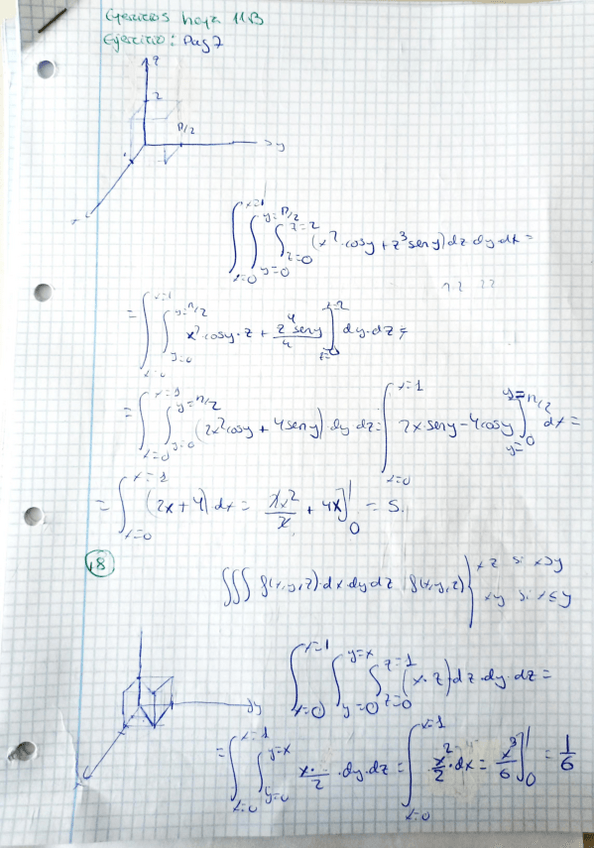 Ejercicios hoja 11B
Ejercicio: Pag 7
z
2
π/2
y
x
∫_{x=0}^{x=1} ∫_{y=0}^{y=π/2} ∫_{z=0}^{z=2} (x² cosy + z³ seny) dz dy dx =
= ∫_{x=0}^{x=1} ∫_{y=0}^{y=π/2} x² cosy · z + z⁴ seny / 4 ]_{z=0}^{z=2} dy · dz =
= ∫_{x=0}^{x=1} ∫_{y=0}^{y=π/2} (2x² cosy + 4 seny) dy dz = ∫_{x=0}^{x=1} 2x · seny - 4 cosy ]_{y=0}^{y=π/2} dx =
= ∫_{x=0}^{x=1} (2x + 4) dx = 2x²/2 + 4x ]_0^1 = 5
18
∫∫∫ f(x,y,z) · dx dy dz / f(x,y,z) { xz si x>y
xy si x≤y
y
x
∫_{x=0}^{x=1} ∫_{y=0}^{y=x} ∫_{z=0}^{z=1} (x · z) dz · dy · dz =
= ∫_{x=0}^{x=1} ∫_{y=0}^{y=x} x · /2 · dy · dz = ∫_{x=0}^{x=1} x²/2 · dx = x³/6 ]_0^1 = 1/6